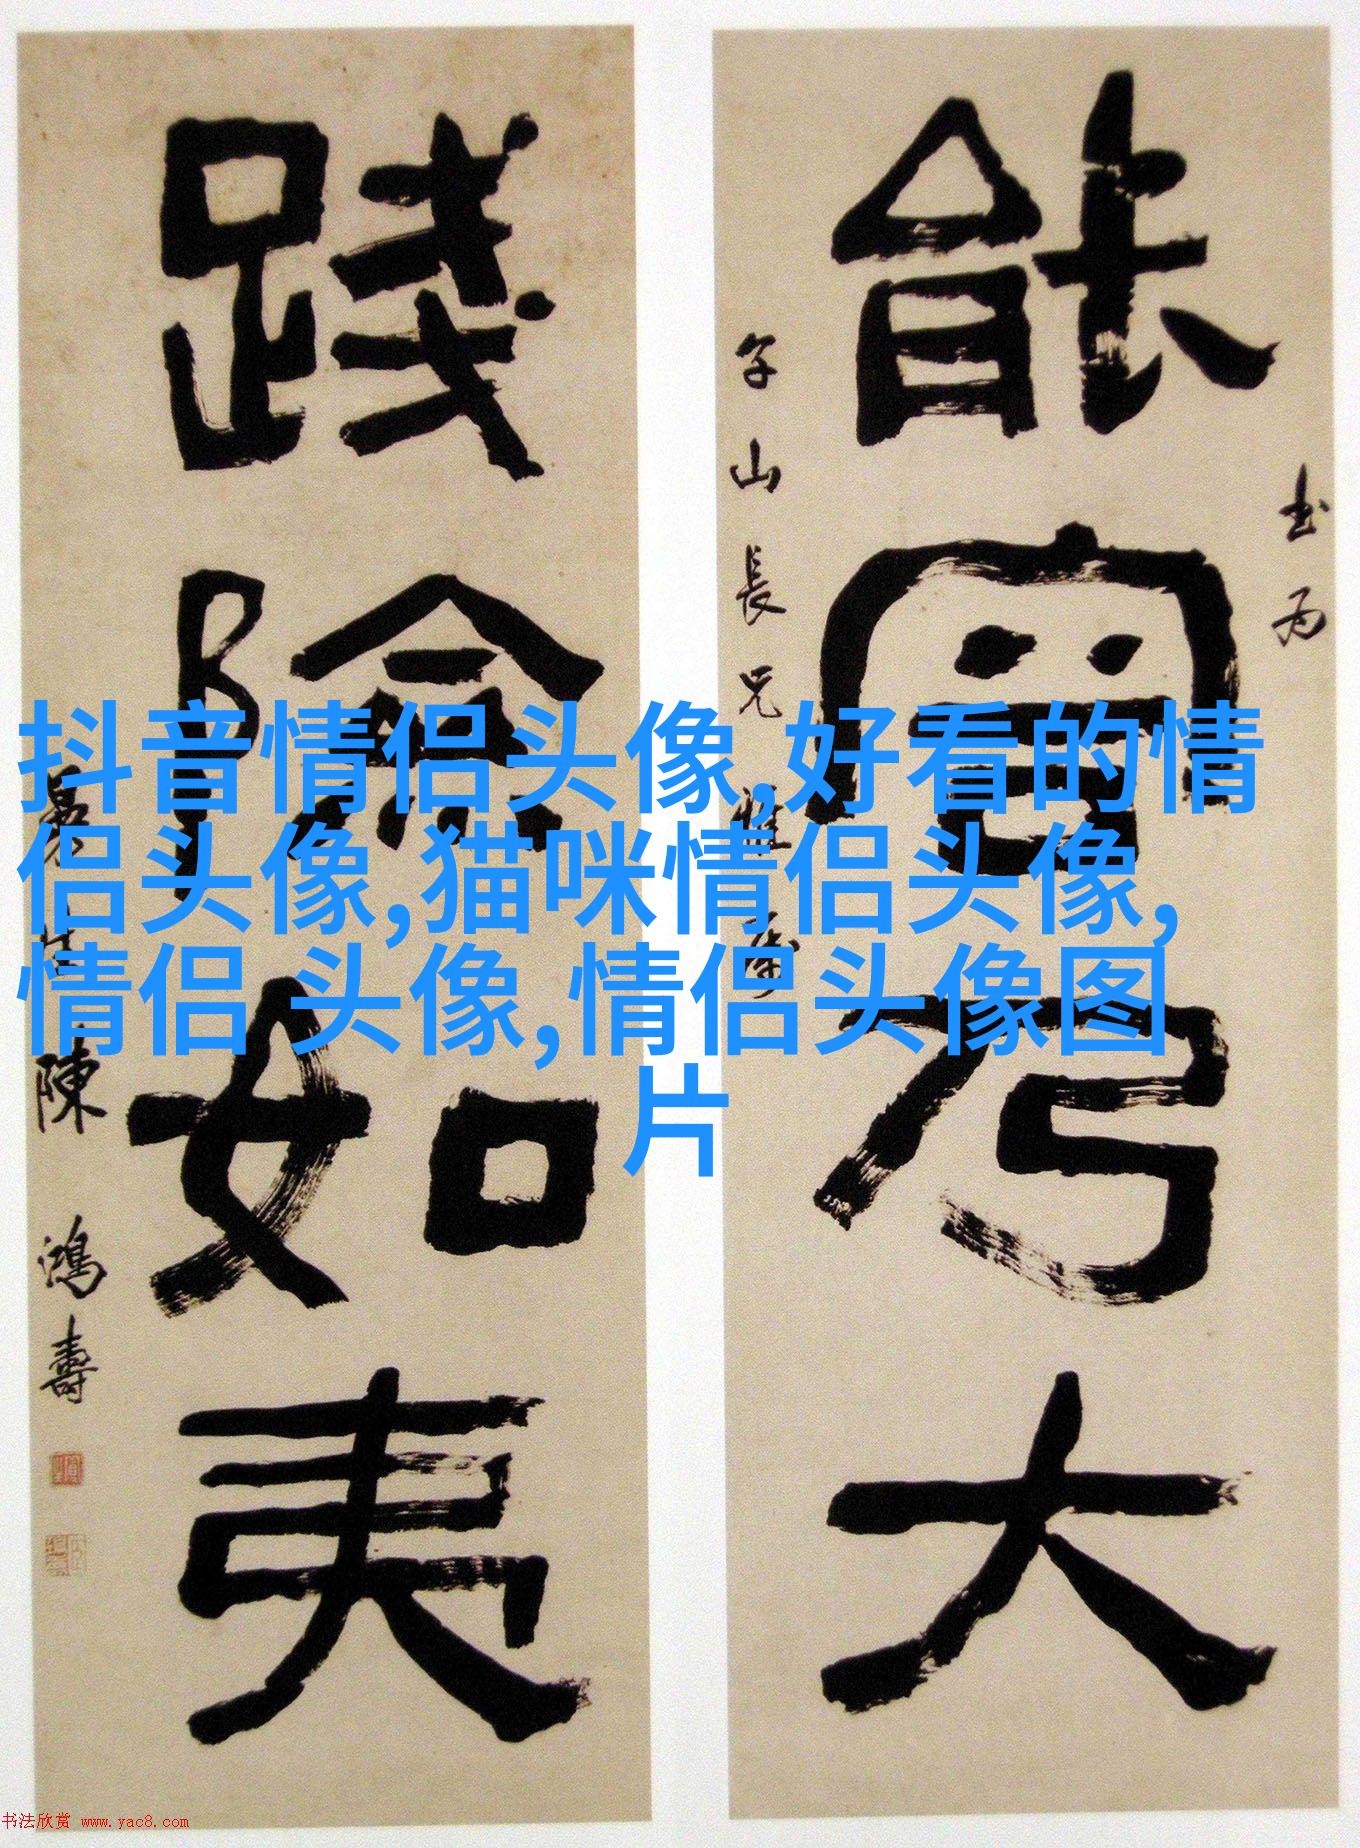 抖音情侣头像,好看的情
侣头像,猫咪情侣头像,
情侣 头像,情侣头像图
片
書為
能容乃大
山長兄雅屬
踐險如夷
曼生陳鴻壽
书法欣赏 www.yac8.com